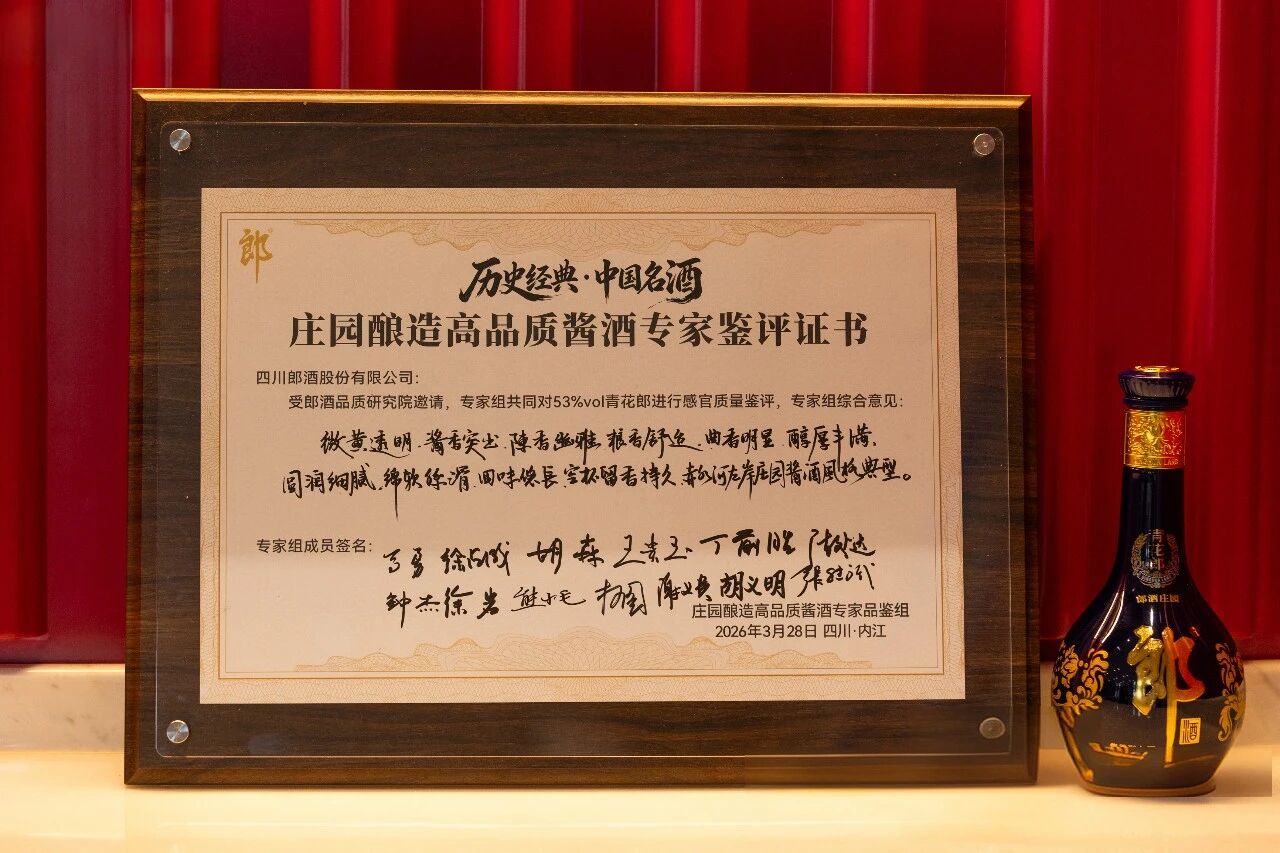 郎
历史经典·中国名酒
庄园酿造高品质酱酒专家鉴评证书
四川郎酒股份有限公司:
受郎酒品质研究院邀请，专家组共同对53%vol青花郎进行感官质量鉴评，专家组综合意见:
微黄透明、酱香突出、陈香幽雅、粮香舒适、曲香明显、醇厚丰满、
圆润细腻、绵软丝滑、回味悠長、空杯留香持久、赤水河左岸庄园酱酒風格典型。
专家组成员签名:
马勇 徐占成 胡森 王贵玉 丁前胜
钟杰 徐岩 熊小毛 胡义明
庄园酿造高品质酱酒专家品鉴组
2026年3月28日 四川·内江
青花郎
郎酒庄园
郎
酒